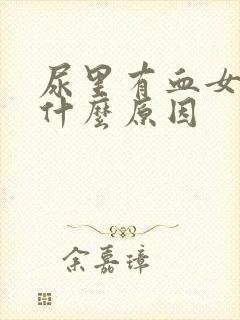 尿里有血女
什麼原因
余嘉璋